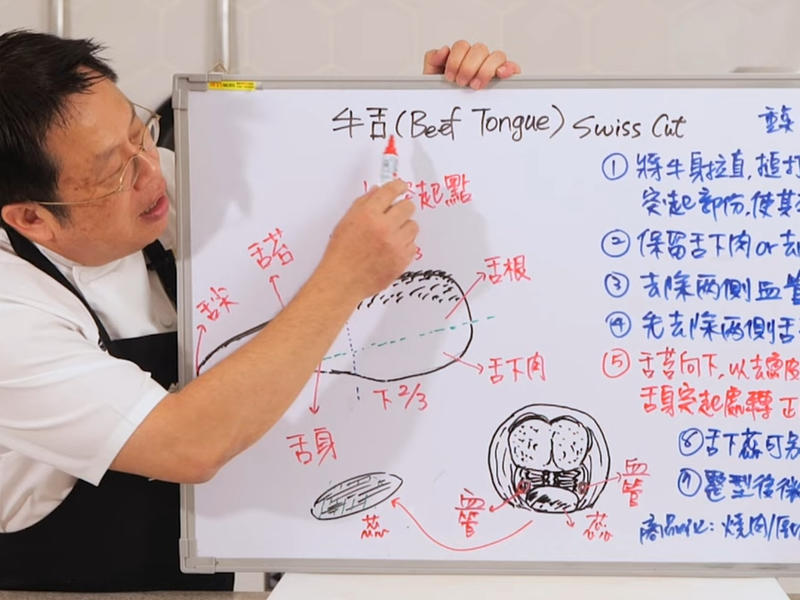 牛舌(Beef Tongue) Swiss Cut
起點
舌苔
舌尖
舌根
舌下肉
下2/3
舌身
蕊
血管
血管
蕊
① 將牛身拉直,搥打
突起部份,使其
② 保留舌下肉or去
③ 去除兩側血管
④ 先去除兩側舌
⑤ 舌苔向下,以去
舌身突起處轉正
⑥ 舌下蕊可
⑦ 整型後
商品化:燒肉/